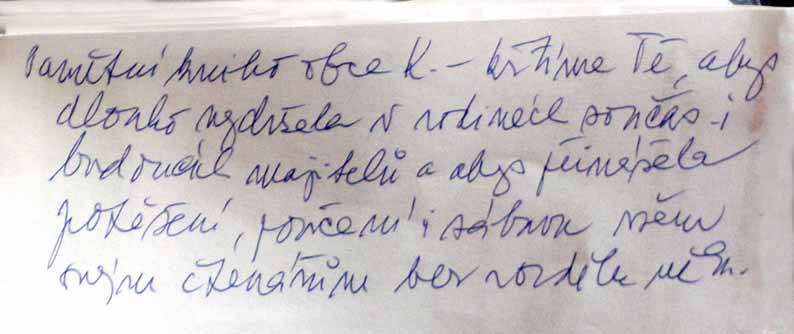 Pamětní kniho obce K. – křtíme Tě, abys
dlouho vydržela v rodinách součas- i
budoucích majitelů a abys přinášela
potěšení, poučení i zábavu všem
svým čtenářům bez rozdílu